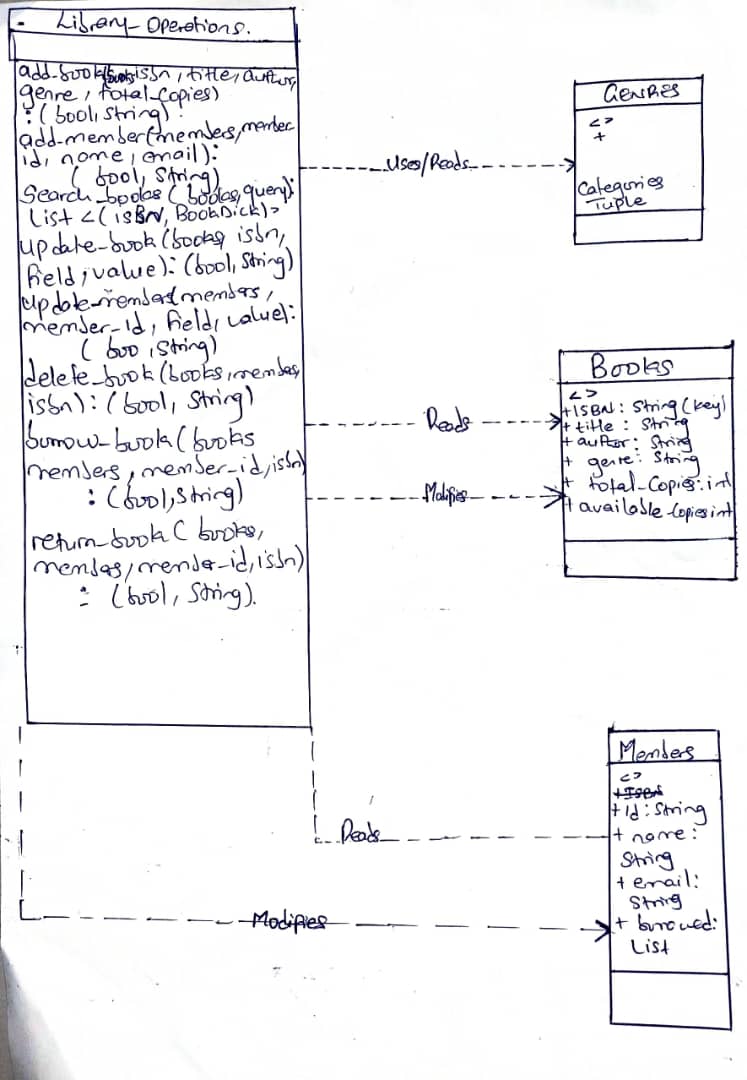 - Library-Operations.
add-book(books isbn, title, author,
genre, total-copies)
: (bool, String)
add-member(members, member
id, name, email):
( bool, String)
Search-books (books, query):
List <(ISBN, BookDick)>
update-book(books, isbn,
field, value): (bool, String)
update-member(members,
member-id, field, value):
( boo, String)
delete-book(books, members,
isbn): (bool, String)
burrow-book(books
members, member-id, isbn)
: (bool, String)
return-book( books,
members, member-id, isbn)
: (bool, String).
Uses/Reads
GENRES
<>
+
Categories
Tuple
Reads
Modifies
Books
<>
+ISBN: String(key)
+title: String
+author: String
+ genre: String
+ total-Copies: int
+ available-Copies int
Reads
Modifies
Members
<>
+ISBN
+id: String
+ name:
String
+ email:
String
+ burrowed:
List